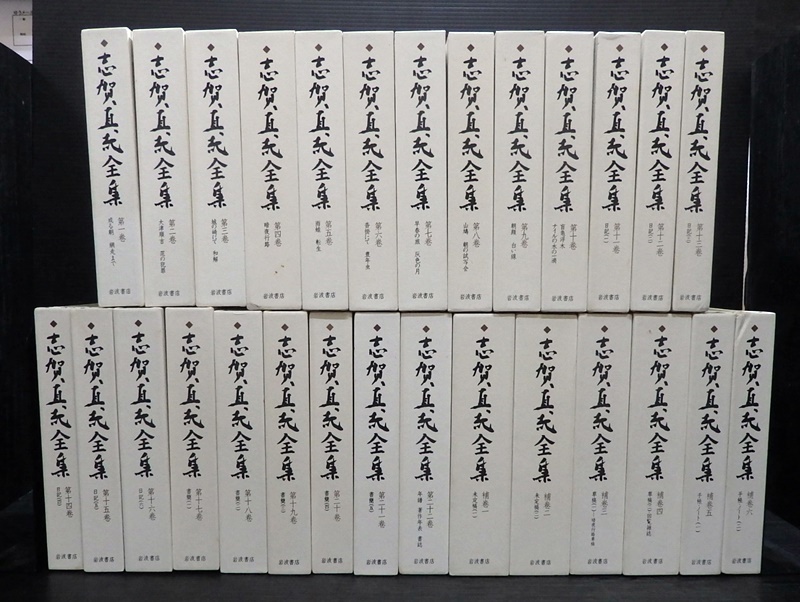 志賀直哉全集 第一卷 或る朝 網走まで 岩波書店
志賀直哉全集 第二卷 大津順吉 范の犯罪 岩波書店
志賀直哉全集 第三卷 城の崎にて 和解 岩波書店
志賀直哉全集 第四卷 暗夜行路 岩波書店
志賀直哉全集 第五卷 雨蛙 転生 岩波書店
志賀直哉全集 第六卷 沓掛にて 豊年虫 岩波書店
志賀直哉全集 第七卷 早春の旅 灰色の月 岩波書店
志賀直哉全集 第八卷 山鳩 朝の試写会 岩波書店
志賀直哉全集 第九卷 朝顔 白い線 岩波書店
志賀直哉全集 第十卷 盲亀浮木 ナイルの水の一滴 岩波書店
志賀直哉全集 第十一卷 日記(一) 岩波書店
志賀直哉全集 第十二卷 日記(二) 岩波書店
志賀直哉全集 第十三卷 日記(三) 岩波書店
志賀直哉全集 第十四卷 日記(四) 岩波書店
志賀直哉全集 第十五卷 日記(五) 岩波書店
志賀直哉全集 第十六卷 日記(六) 岩波書店
志賀直哉全集 第十七卷 書簡(一) 岩波書店
志賀直哉全集 第十八卷 書簡(二) 岩波書店
志賀直哉全集 第十九卷 書簡(三) 岩波書店
志賀直哉全集 第二十卷 書簡(四) 岩波書店
志賀直哉全集 第二十一卷 書簡(五) 岩波書店
志賀直哉全集 第二十二卷 年譜 著作年表 書誌 岩波書店
志賀直哉全集 補卷一 未定稿(一) 岩波書店
志賀直哉全集 補卷二 未定稿(二) 岩波書店
志賀直哉全集 補卷三 草稿(一)・暗夜行路草稿 岩波書店
志賀直哉全集 補卷四 草稿(二)・回覧雑誌 岩波書店
志賀直哉全集 補卷五 手帳・ノート(一) 岩波書店
志賀直哉全集 補卷六 手帳・ノート(二) 岩波書店